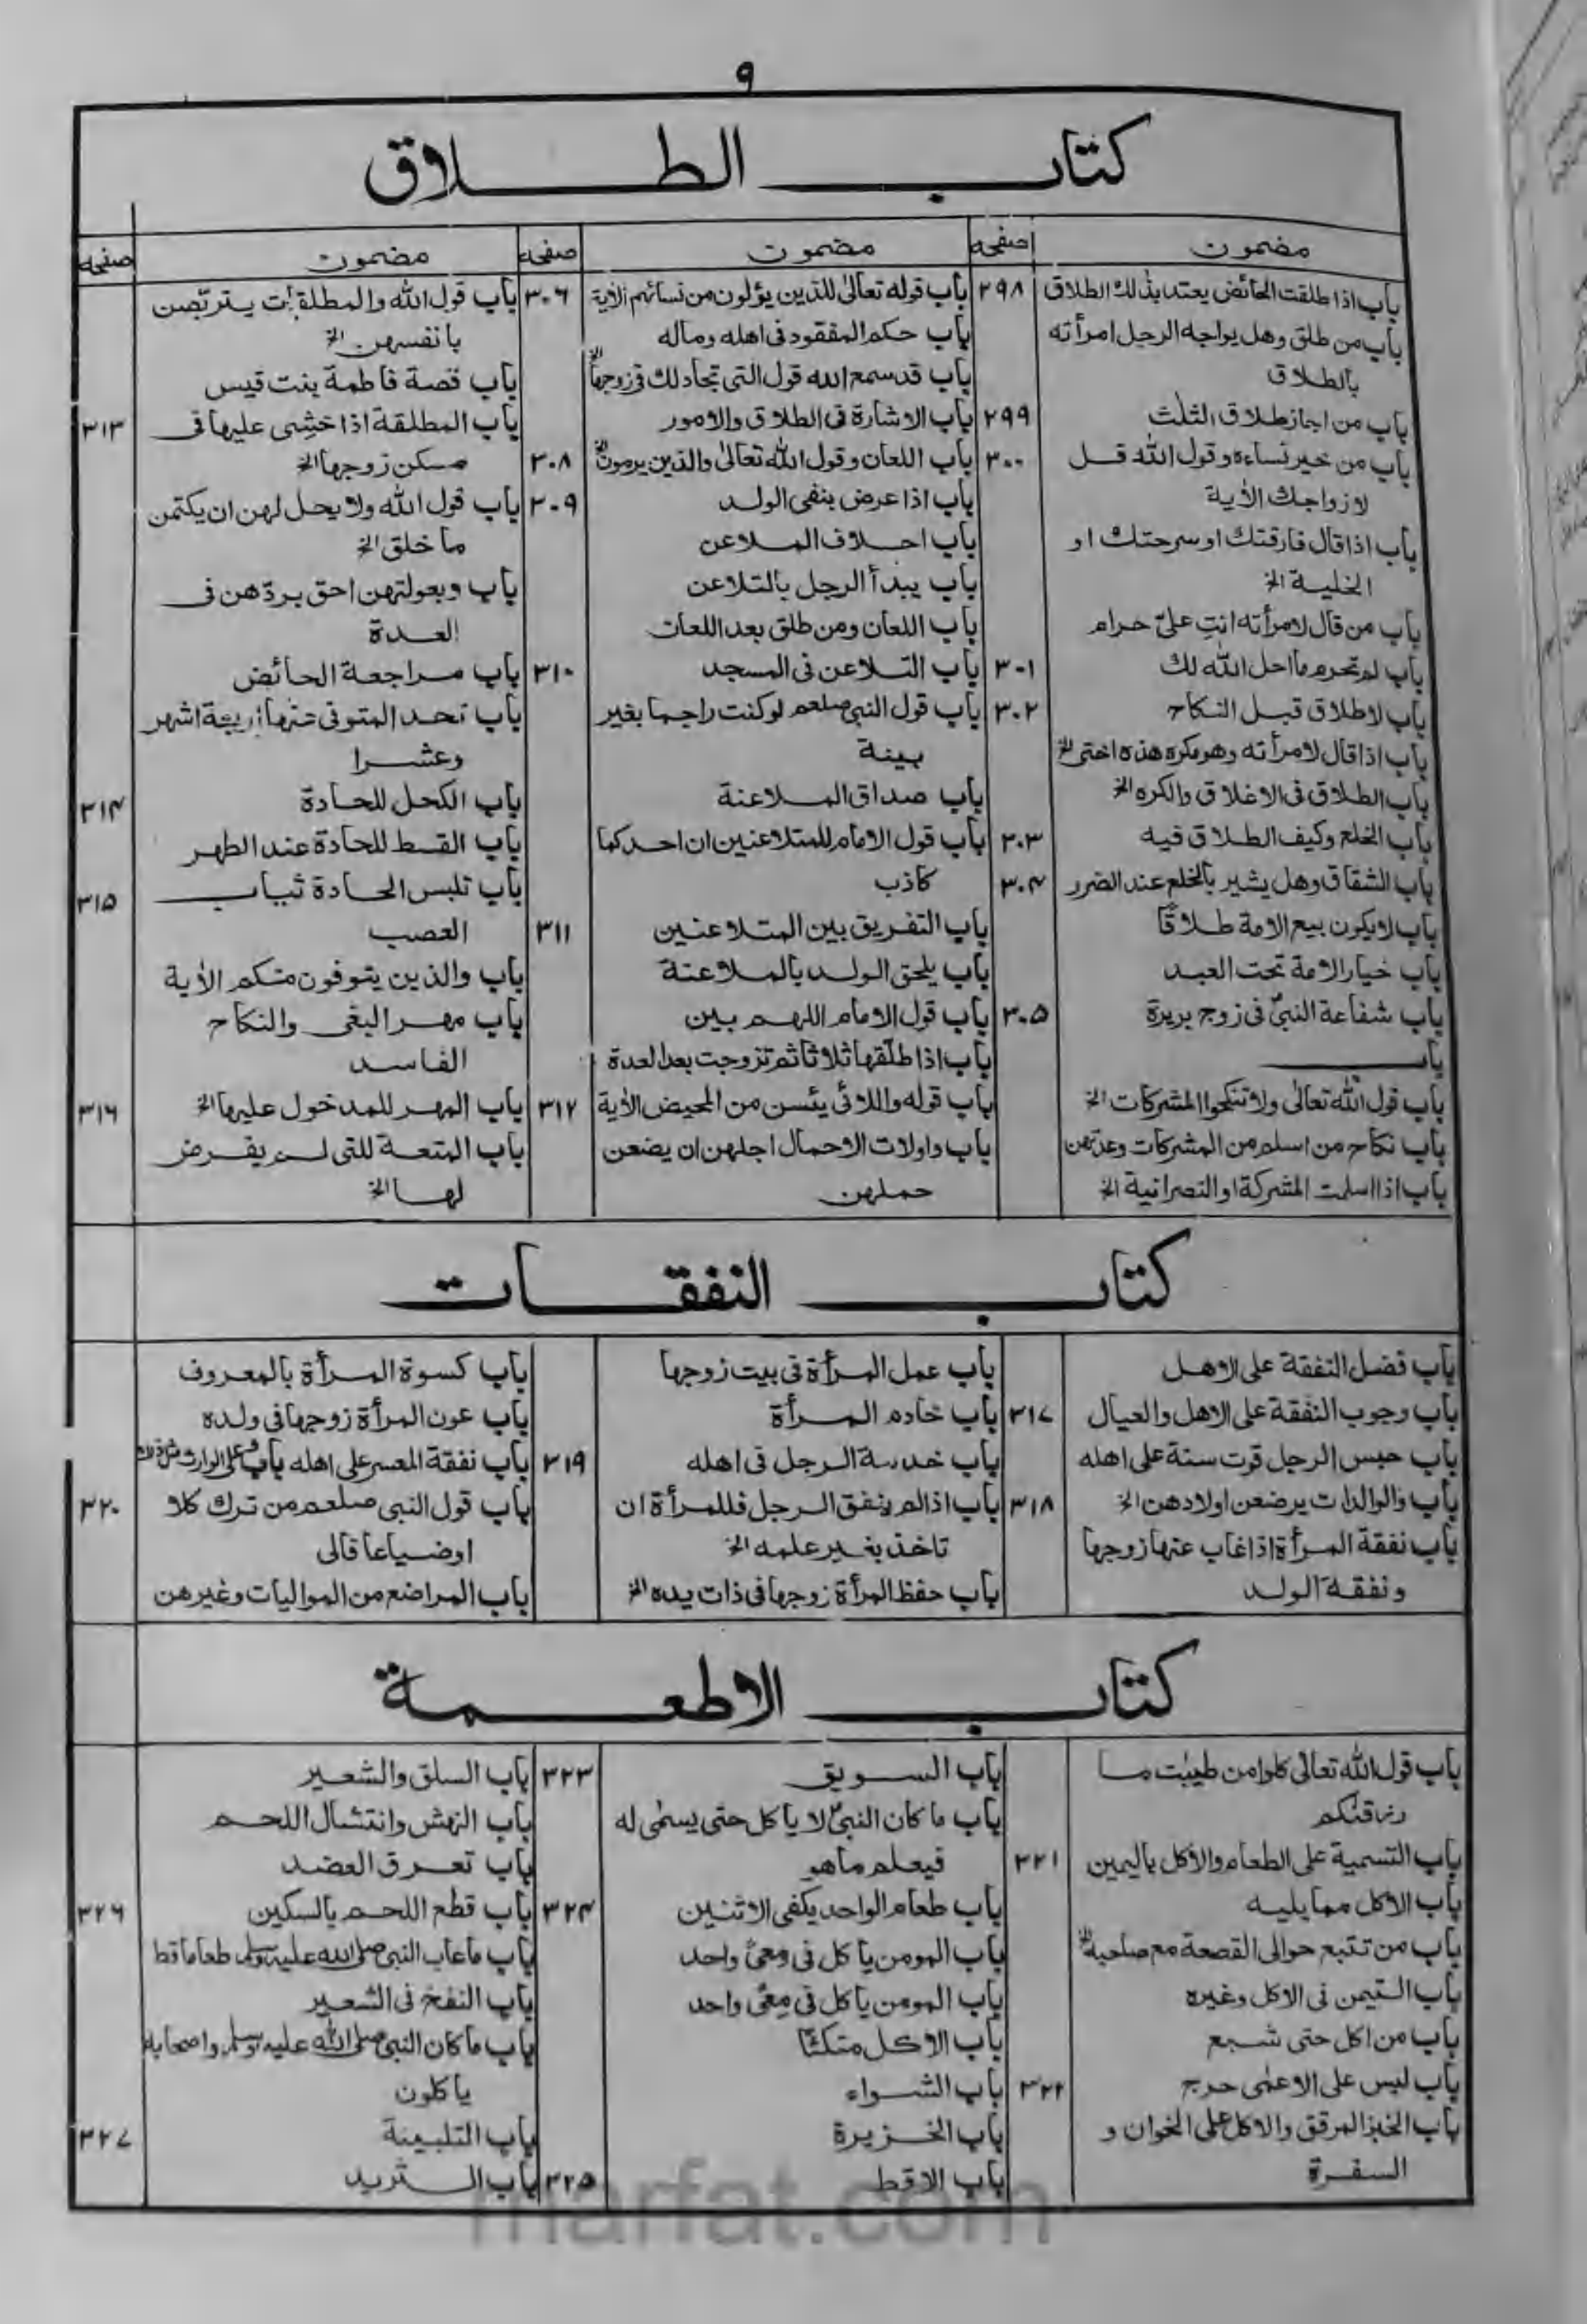 ٩
كتاب الطلاق
مضمون
صفحه
باب اذا طلقت الحائض يعتد بذلك الطلاق ٢٩٨
باب من طلق وهل يواجه الرجل امرأته
بالطلاق
باب من اجاز طلاق الثلث ٢٩٩
باب من خير نساءه وقول الله قل ٣٠٠
لازواجك الأية
باب اذا قال فارقتك او سرحتك او
الخلية الخ
باب من قال لامرأته انتِ عليّ حرام
باب لم تحرم ما احل الله لك ٣٠١
باب لا طلاق قبل النكاح ٣٠٢
باب اذا قال لامرأته وهو مكره هذه اختى الخ
باب الطلاق فى الاغلاق والكره الخ
باب الخلع وكيف الطلاق فيه ٣٠٣
باب الشقاق وهل يشير بالخلع عند الضرر ٣٠٤
باب لا يكون بيع الامة طلاقًا
باب خيار الامة تحت العبد
باب شفاعة النبىؐ فى زوج بريرة ٣٠٥
باب
باب قول الله تعالى ولا تنكحوا المشركات الخ
باب نكاح من اسلم من المشركات وعدتهن
باب اذا اسلمت المشركة او النصرانية الخ
مضمون
صفحه
باب قوله تعالىٰ للذين يؤلون من نسائهم الأية ٣٠٦
باب حكم المفقود فى اهله وماله
باب قد سمع الله قول التى تجادلك فى زوجها الخ
باب الاشارة فى الطلاق والامور
باب اللعان وقول الله تعالىٰ والذين يرمون الخ ٣٠٨
باب اذا عرض بنفى الولد ٣٠٩
باب احلاف الملاعن
باب يبدأ الرجل بالتلاعن
باب اللعان ومن طلق بعد اللعان
باب التلاعن فى المسجد ٣١٠
باب قول النبى صلعم لو كنت راجما بغير
بينة
باب صداق الملاعنة
باب قول الامام للمتلاعنين ان احدكما
كاذب
باب التفريق بين المتلاعنين ٣١١
باب يلحق الولد بالملاعنة
باب قول الامام اللهم بين
باب اذا طلّقها ثلاثا ثم تزوجت بعد العدة
باب قوله واللائى يئسن من المحيض الأية ٣١٢
باب واولات الاحمال اجلهن ان يضعن
حملهن
مضمون
صفحه
باب قول الله والمطلقات يتربّصن
بانفسهن الخ
باب قصة فاطمة بنت قيس
باب المطلقة اذا خشِى عليها فى ٣١٣
مسكن زوجها الخ
باب قول الله ولا يحل لهن ان يكتمن
ما خلق الخ
باب وبعولتهن احق بردّهن فى
العدة
باب مراجعة الحائض
باب تحد المتوفى عنها اربعة اشهر
وعشرا
باب الكحل للحادة ٣١٤
باب القسط للحادة عند الطهر
باب تلبس الحادة ثياب ٣١٥
العصب
باب والذين يتوفون منكم الأية
باب مهر البغى والنكاح
الفاسد
باب المهر للمدخول عليها الخ ٣١٦
باب المتعة للتى لم يفرض
لها الخ
كتاب النفقات
باب فضل النفقة على الاهل
باب وجوب النفقة على الاهل والعيال ٣١٧
باب حبس الرجل قوت سنة على اهله
باب والوالدات يرضعن اولادهن الخ ٣١٨
باب نفقة المرأة اذا غاب عنها زوجها
ونفقة الولد
باب عمل المرأة فى بيت زوجها
باب خادم المرأة
باب خدمة الرجل فى اهله ٣١٩
باب اذا لم ينفق الرجل فللمرأة ان
تاخذ بغير علمه الخ
باب حفظ المرأة زوجها فى ذات يده الخ
باب كسوة المرأة بالمعروف
باب عون المرأة زوجها فى ولده
باب نفقة المعسر على اهله باب وعلى الوارث مثل ذلك
باب قول النبى صلعم من ترك كلا ٣٢٠
اوضياعا فالى
باب المراضع من المواليات وغيرهن
كتاب الاطعمة
باب قول الله تعالىٰ كلوا من طيبٰت ما
رزقنٰكم
باب التسمية على الطعام والاكل باليمين ٣٢١
باب الاكل مما يليه
باب من تتبع حوالى القصعة مع صاحبه الخ
باب التيمن فى الاكل وغيره
باب من اكل حتى شبع
باب ليس على الاعمٰى حرج ٣٢٢
باب الخبز المرقق والاكل على الخوان و
السفرة
باب السويق ٣٢٣
باب ما كان النبىؐ لا ياكل حتى يسمٰى له
فيعلم ماهو
باب طعام الواحد يكفى الاثنين ٣٢٤
باب المومن ياكل فى معىً واحد
باب المومن ياكل فى معىً واحد
باب الاكل متكئًا
باب الشواء
باب الخزيرة
باب الاقط ٣٢٥
باب السلق والشعير
باب النهش وانتشال اللحم
باب تعرق العضد
باب قطع اللحم بالسكين ٣٢٦
باب ماعاب النبى صلى الله عليه وسلم طعاما قط
باب النفخ فى الشعير
باب ما كان النبى صلى الله عليه وسلم واصحابه
ياكلون
باب التلبينة ٣٢٧
باب الثريد
marfat.com